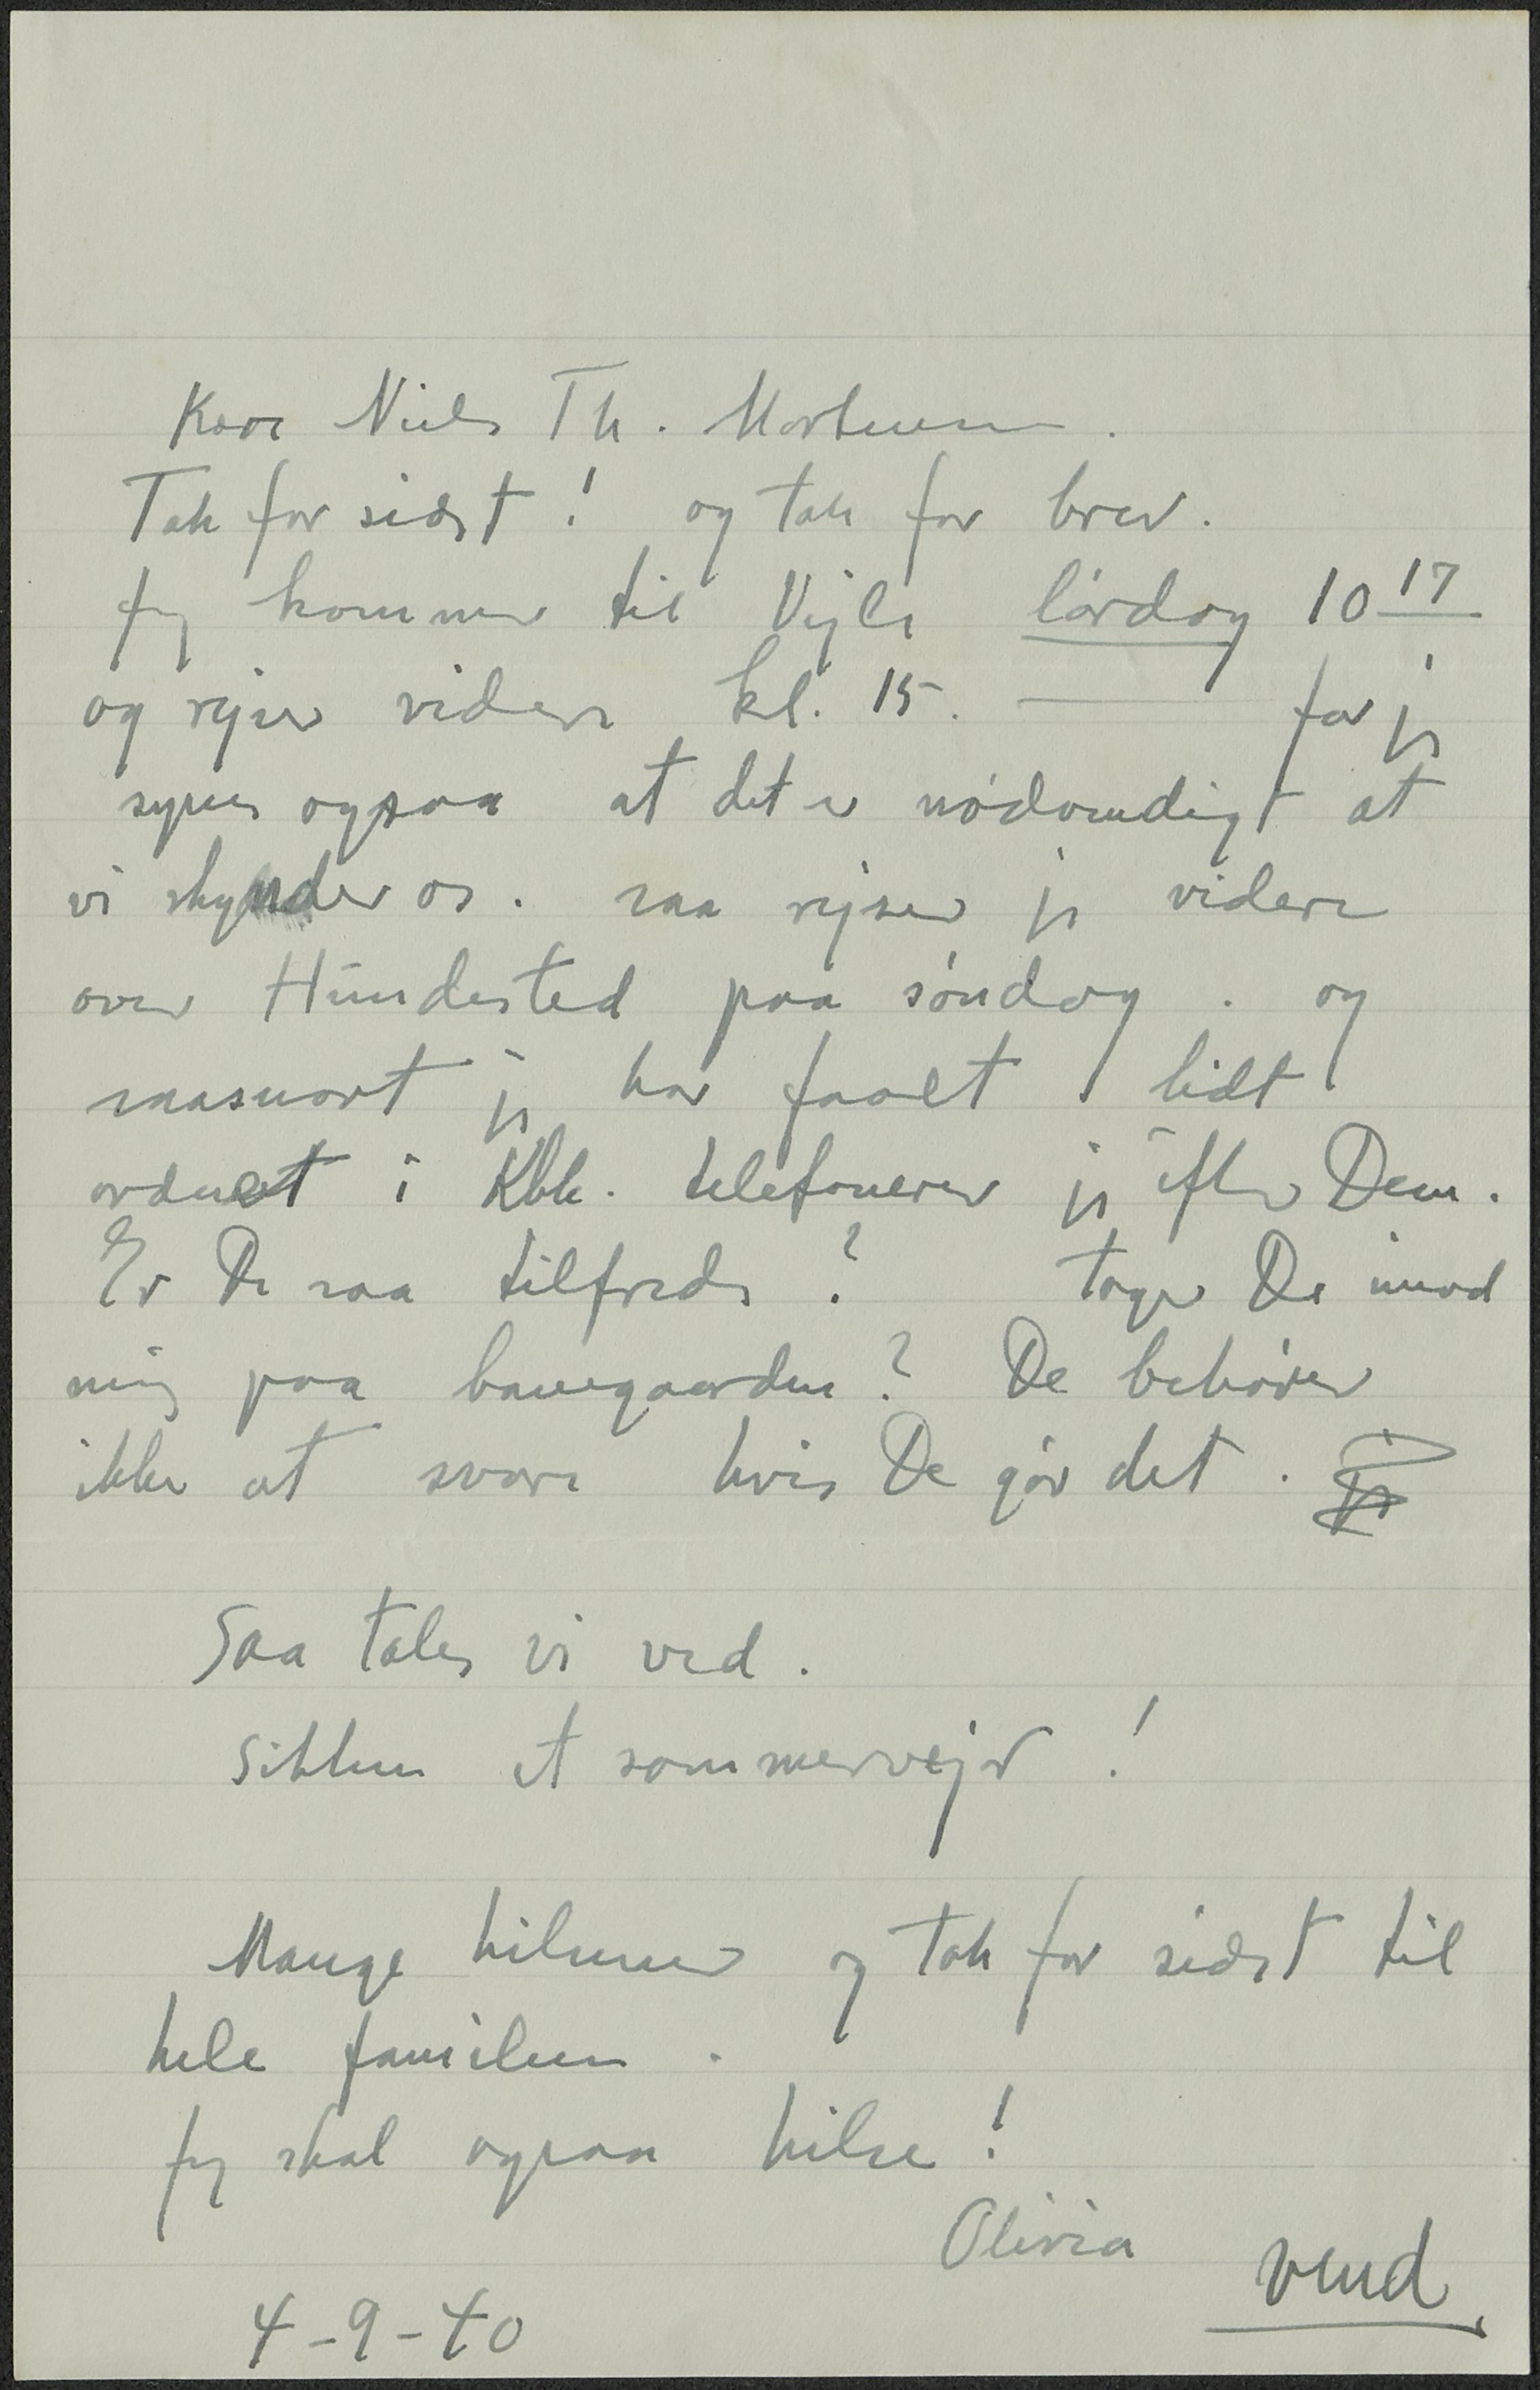 Kære Niels Th. Mortensen.
Tak for sidst! og tak for brev.
Jeg kommer til Vejle lördag 10 17
og rejser videre kl. 15. — for jeg
synes ogsaa at det er nödvendigt at
vi skynder os. saa rejser jeg videre
over Hundested paa söndag. og
saasnart jeg har faaet lidt
ordnet i Kbh. telefonerer jeg efter Dem.
Er De saa tilfreds? tager De imod
mig paa banegaarden? De behöver
ikke at svare hvis De gör det. 
Saa tales vi ved.
Sikken et sommervejr!
Mange hilsener og tak for sidst til
hele familien.
Jeg skal ogsaa hilse!
Olivia
vend
4-9-40